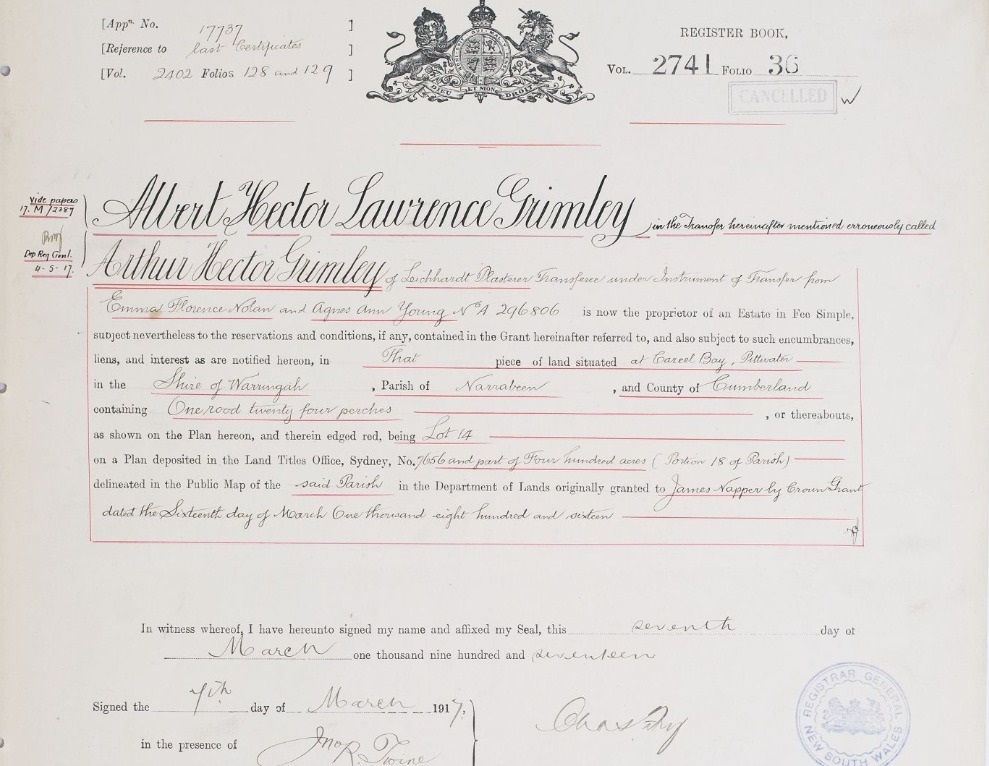 [Appn. No. 17737 ]
[Reference to last Certificates
[Vol. 2402 Folios 128 and 129 ]
DIEU ET MON DROIT
REGISTER BOOK,
VOL. 2741 FOLIO 36
CANCELLED
Vide papers
17. M/2787
Dep Reg Genl.
4-5-17.
Albert Hector Lawrence Grimley in the Transfer hereinafter mentioned erroneously called
Arthur Hector Grimley of Leichhardt Plasterer Transferee under Instrument of Transfer from
Emma Florence Nolan and Agnes Ann Young No A 296806 is now the proprietor of an Estate in Fee Simple,
subject nevertheless to the reservations and conditions, if any, contained in the Grant hereinafter referred to, and also subject to such encumbrances,
liens, and interest as are notified hereon, in That piece of land situated at Careel Bay, Pittwater
in the Shire of Warringah , Parish of Narrabeen , and County of Cumberland
containing One rood twenty four perches , or thereabouts,
as shown on the Plan hereon, and therein edged red, being Lot 14
on a Plan deposited in the Land Titles Office, Sydney, No. 7656 and part of Four hundred acres (Portion 18 of Parish)
delineated in the Public Map of the said Parish in the Department of Lands originally granted to James Napper by Crown Grant
dated the Sixteenth day of March One thousand eight hundred and sixteen
In witness whereof, I have hereunto signed my name and affixed my Seal, this seventh day of
March one thousand nine hundred and seventeen
Signed the 7th day of March 1917,
in the presence of Jno R. Twine
REGISTRAR GENERAL
NEW SOUTH WALES